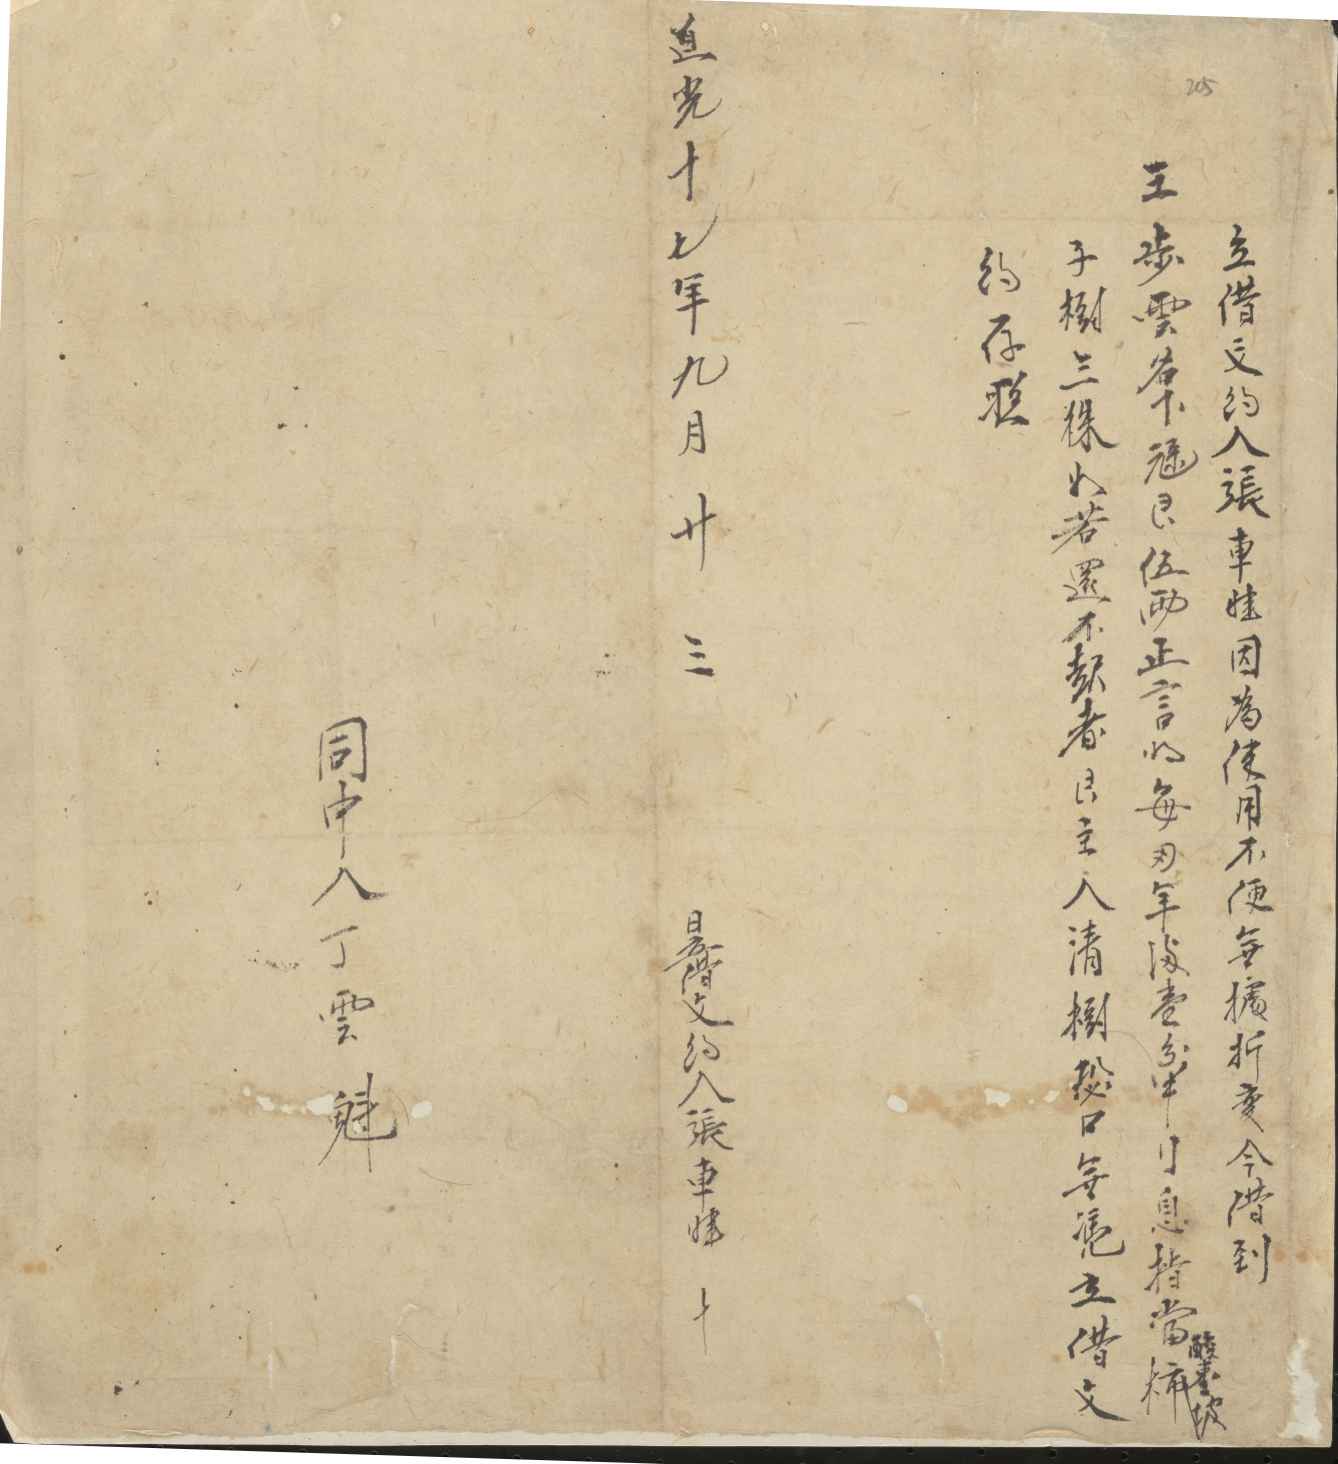 205
立借文約人張車娃因為使用不便無擄折变今借到
王步雲名下艮伍両正言明每月年満壹分半行息指當柿
酸枣坡
子樹三株如若還不起者艮主人清樹恐口無凴立借文
約存照
道光十七年九月廿三
是借文約人張車娃 十
同中人丁雲魁